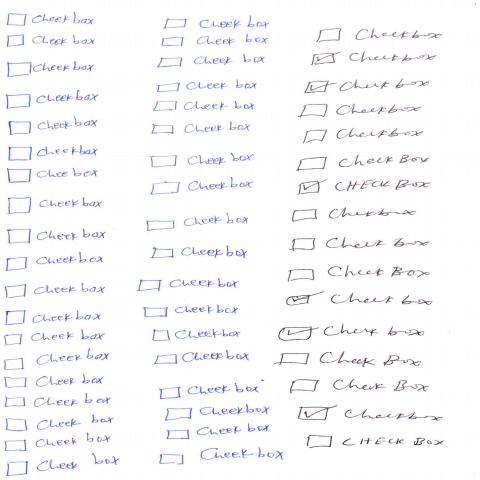 Cheekbox
Cheekbox
Cheekbox
Cheekbox
Cheekbox
Cheekbox
Cheebox
Cheekbox
Cheekbox
Cheekbox
Cheekbox
Cheekbox
Cheekbox
Cheekbox
Cheek box
Cheek box
Cheek box
Cheek box
Cheek box
Cheekbox
Cheekbox
Cheekbox
Cheekbox
Cheekbox
Cheekbox
Cheekbox
Cheekbox
Cheekbox
Cheekbox
Cheekbox
Cheekbox
Cheekbox
Cheekbox
Cheekbox
Cheekbox
Cheekbox
Cheekbox
Checkbox
Checkbox
Checkbox
Checkbox
Checkbox
Check Box
CHECK BOX
Checkbox
Check box
Check Box
Check box
Check box
Check Box
Check Box
Checkbox
CHECK BOX